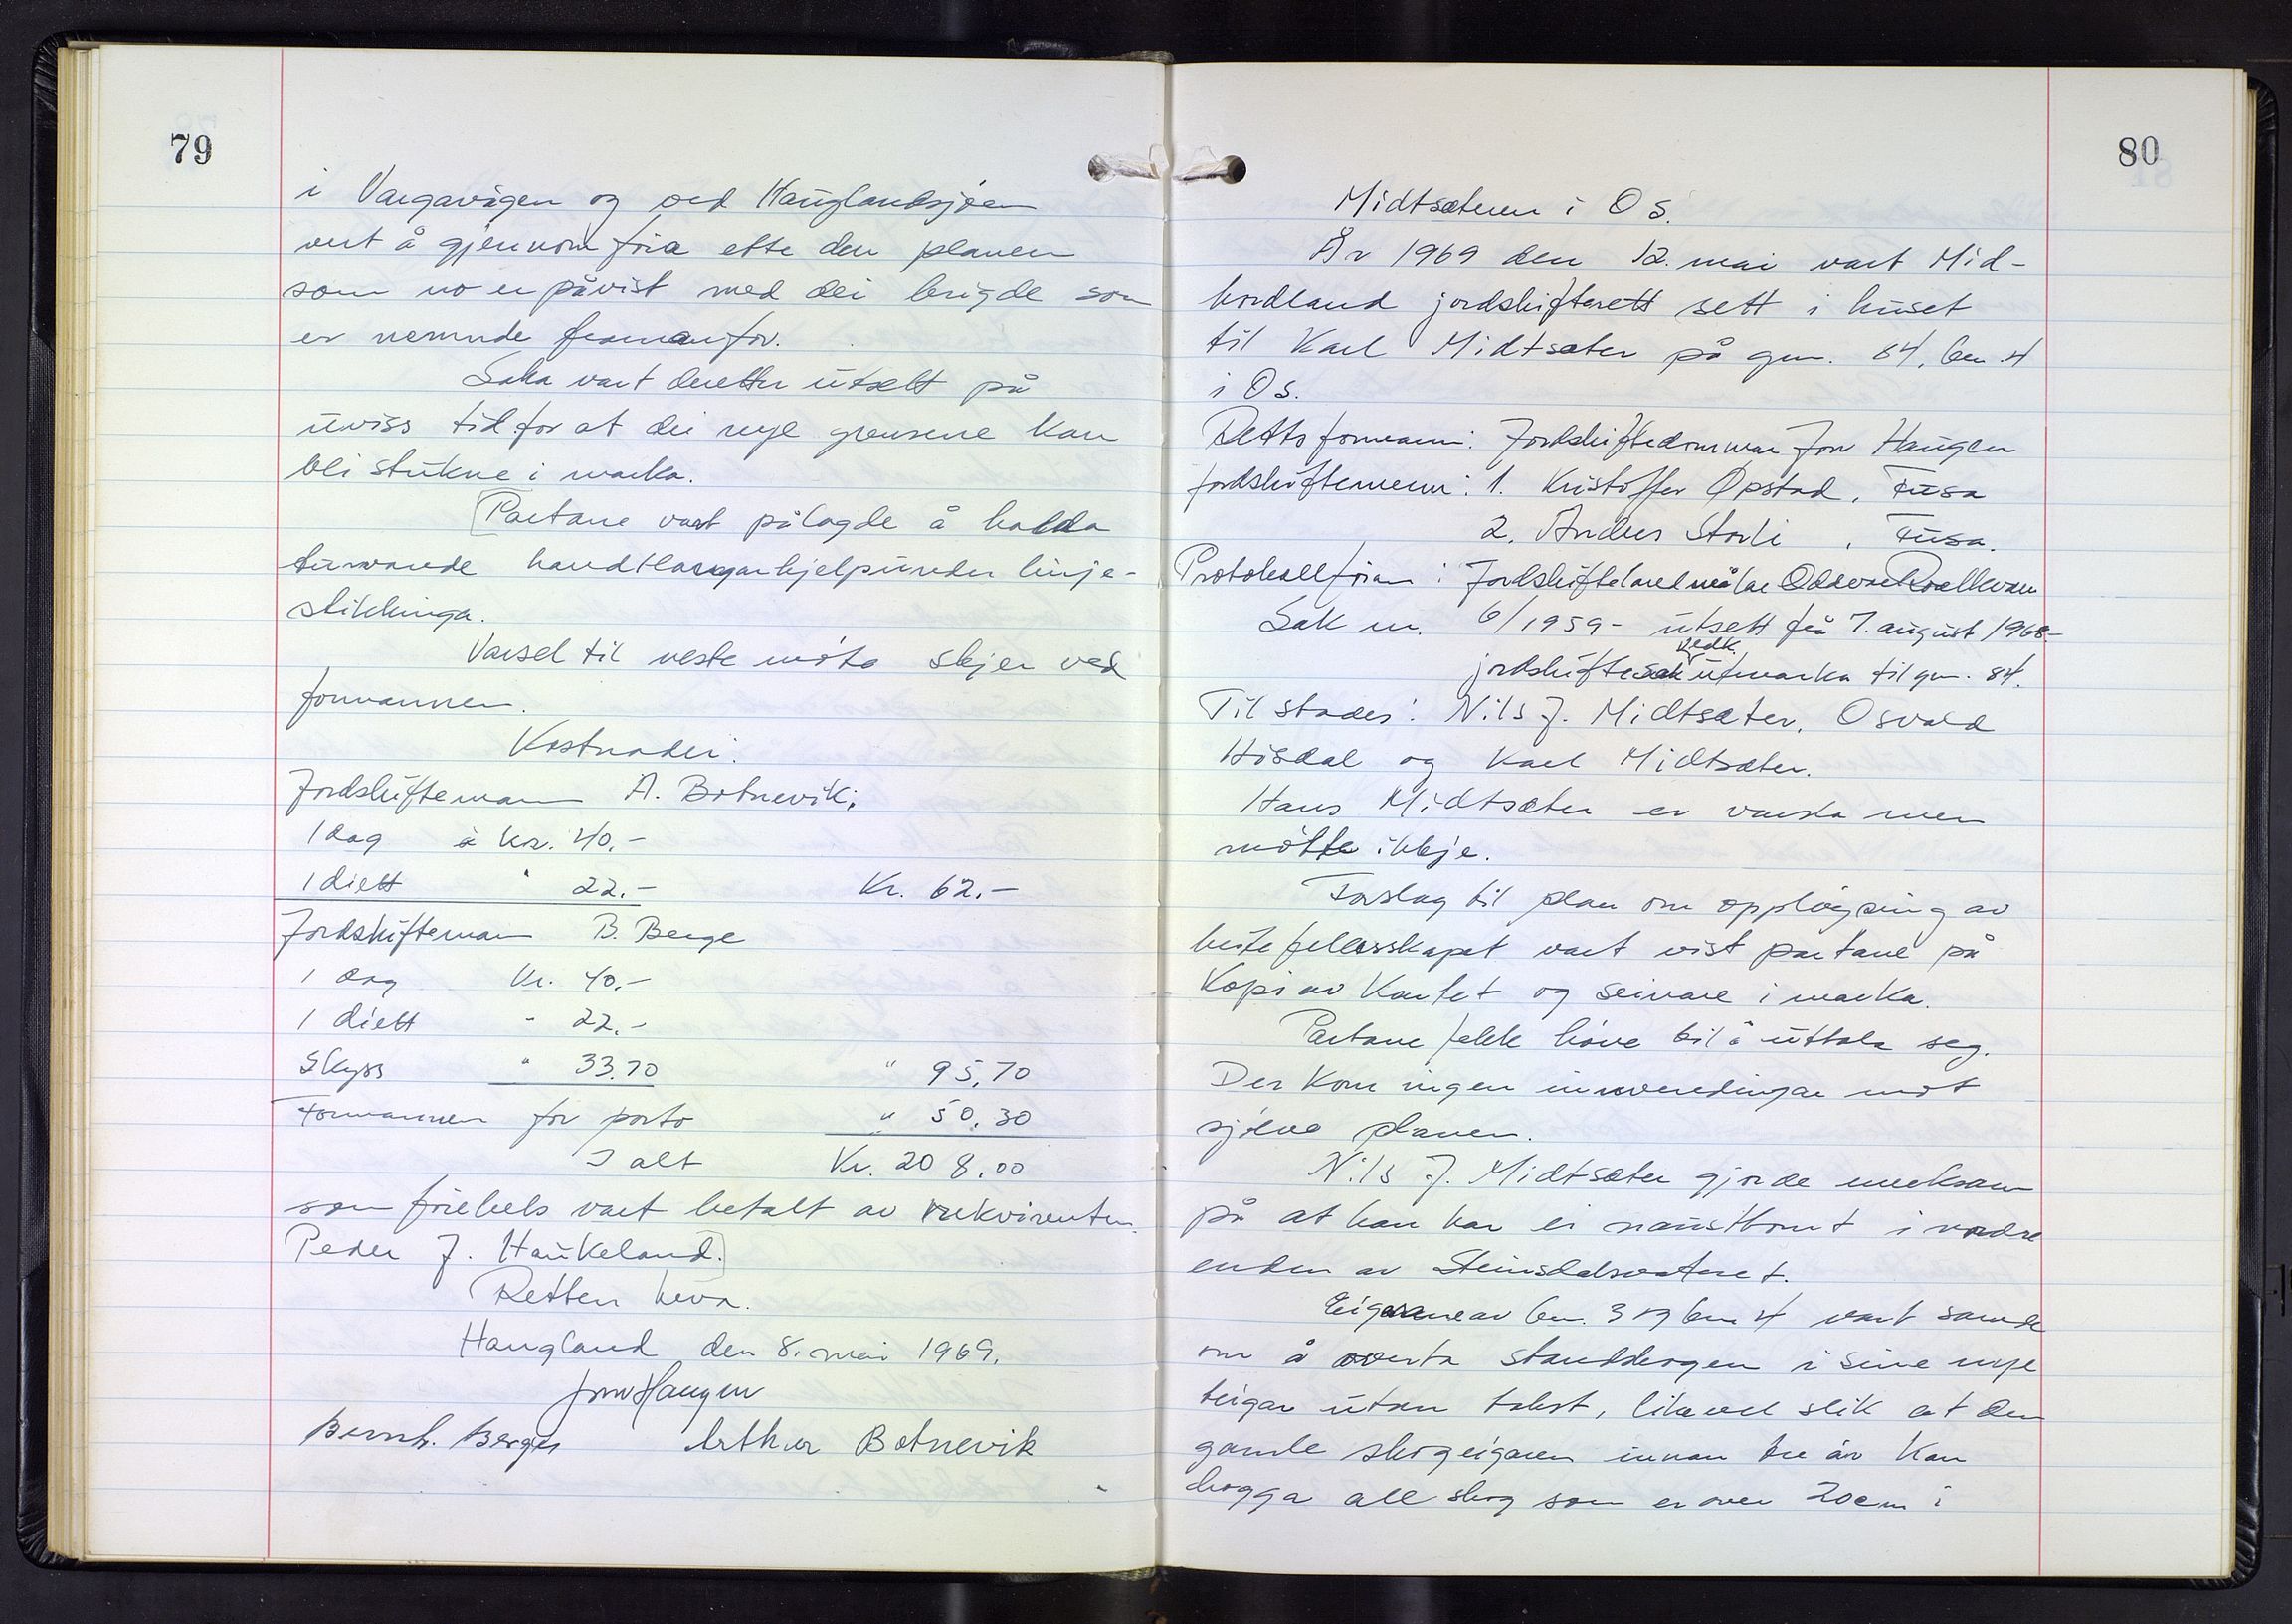 79
i Vargavågen og ved Hauglandsjøen
vert å gjennomføra ette den planen
som no er påvist med dei brigde som
er nemnde framanfor.
Saka vart deretter utsett på
uviss tid for at dei nye grensene kan
bli stukne i marka.
Partane vart pålagde å halda
turvande handtlangarhjelp under linje-
stikkinga.
Varsel til neste møte skjer ved
formannen.
Kostnader.
Jordskiftemann A. Botnevik:
1 dag à kr. 40.-
1 diett " 22.- Kr. 62.-
Jordskiftemann B. Berge
1 dag Kr. 40.-
1 diett - 22.-
Skyss " 33.70 " 95,70
Formannen for porto " 50,30
I alt Kr. 208,00
som førebels vart betalt av rekvirenten
Peder J. Haukeland.
Retten heva.
Haugland den 8. mai 1969.
Jon Haugen
Bernh. Berge Arthur Botnevik
80
Midtsæteren i Os.
År 1969 den 12. mai vart Mid-
hordland jordskifterett sett i huset
til Karl Midtsæter på gnr. 84, bnr 4
i Os.
Rettsformann: Jordskiftedommar Jon Haugen
Jordskiftemenn: 1. Kristoffer Opstad, Fusa
2. Anders Storli, Fusa.
Protokollførar: Jordskiftelandmålar Oddvar
Sak nr. 6/1959- utsett frå 7. august 1968-
vedk.
jordskiftesak utmarka til gnr. 84.
Til stades: Nils J. Midtsæter, Osvald
Høsdal og Karl Midtsæter.
Hans Midtsæter er varsla men
møtte ikkje.
Forslag til plan om oppløysing av
beitefellesskapet vart vist partane på
Kopi av Kartet og seinare i marka.
Partane fekk høve til å uttala seg.
Der kom ingen innvendingar mot
sjølve planen.
Nils J. Midtsæter gjorde merksam
på at han har ei nausttomt i nordre
enden av Steinsdalsvatnet.
Eigarane av bnr. 3 og bnr 4 vart samde
om å overta standskogen i sine nye
teigar utan takst, likevel slik at den
gamle skogeigaren innan tre år kan
hogga all skog som er over 20 cm i